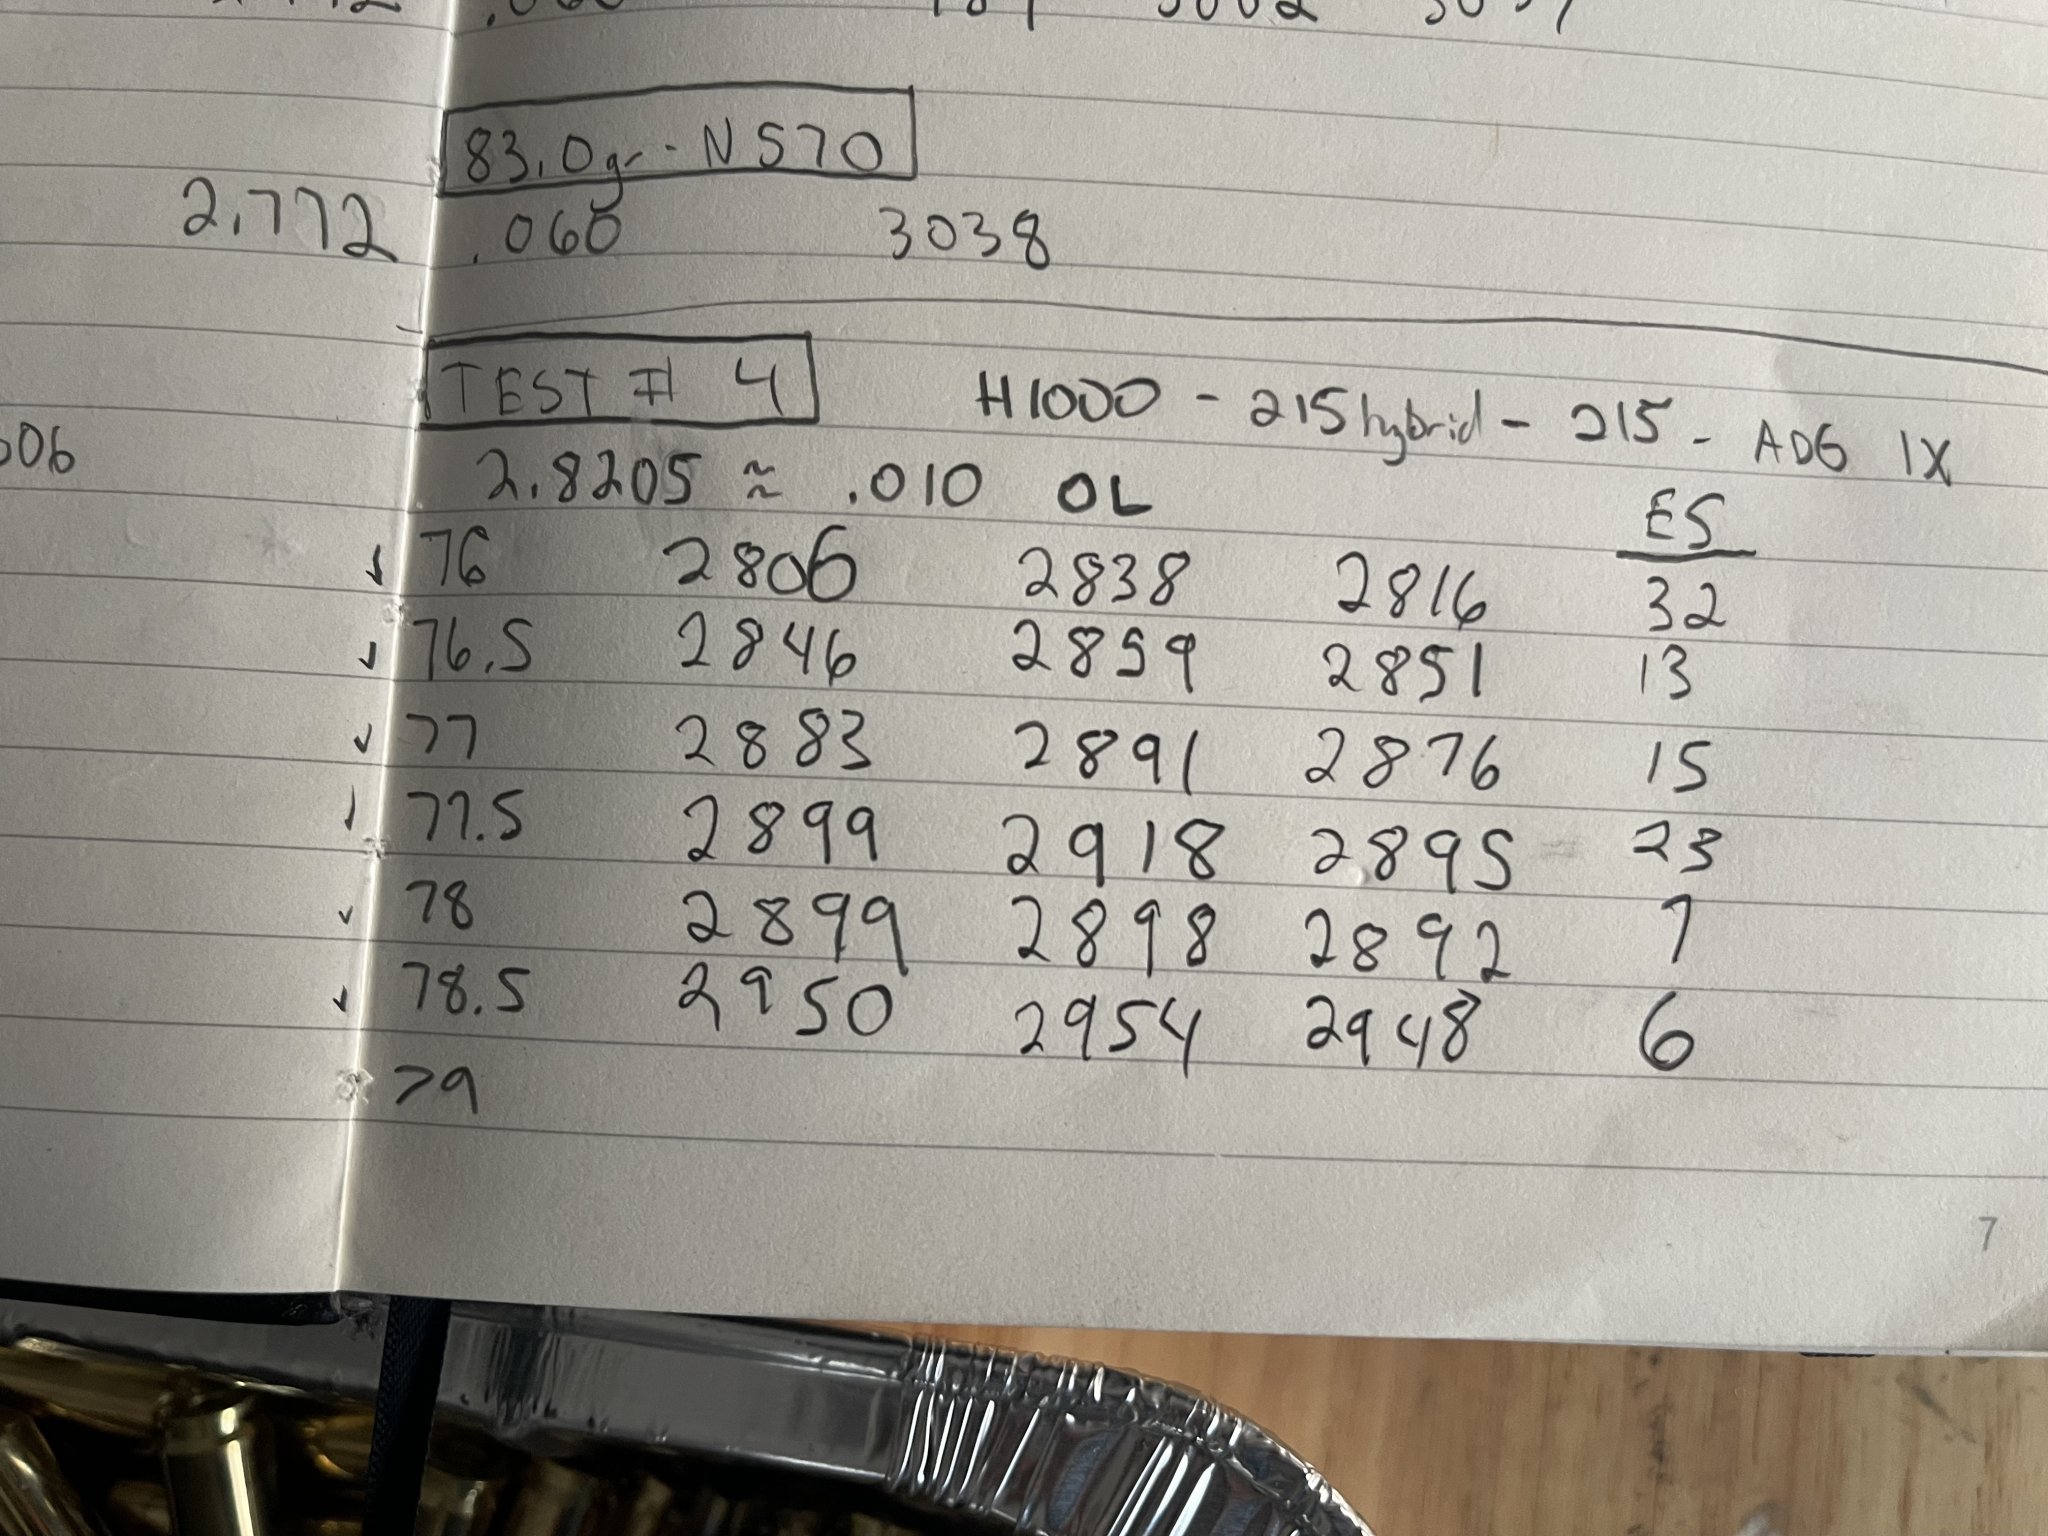 83.0gr - N570
2.772 .060 3038
TEST # 4 H1000 - 215hybrid - 215 - ADG 1X
2.8205 ≈ .010 OL
ES
76 2806 2838 2816 32
76.5 2846 2859 2851 13
77 2883 2891 2876 15
77.5 2899 2918 2895 23
78 2899 2898 2892 7
78.5 2950 2954 2948 6
79
7